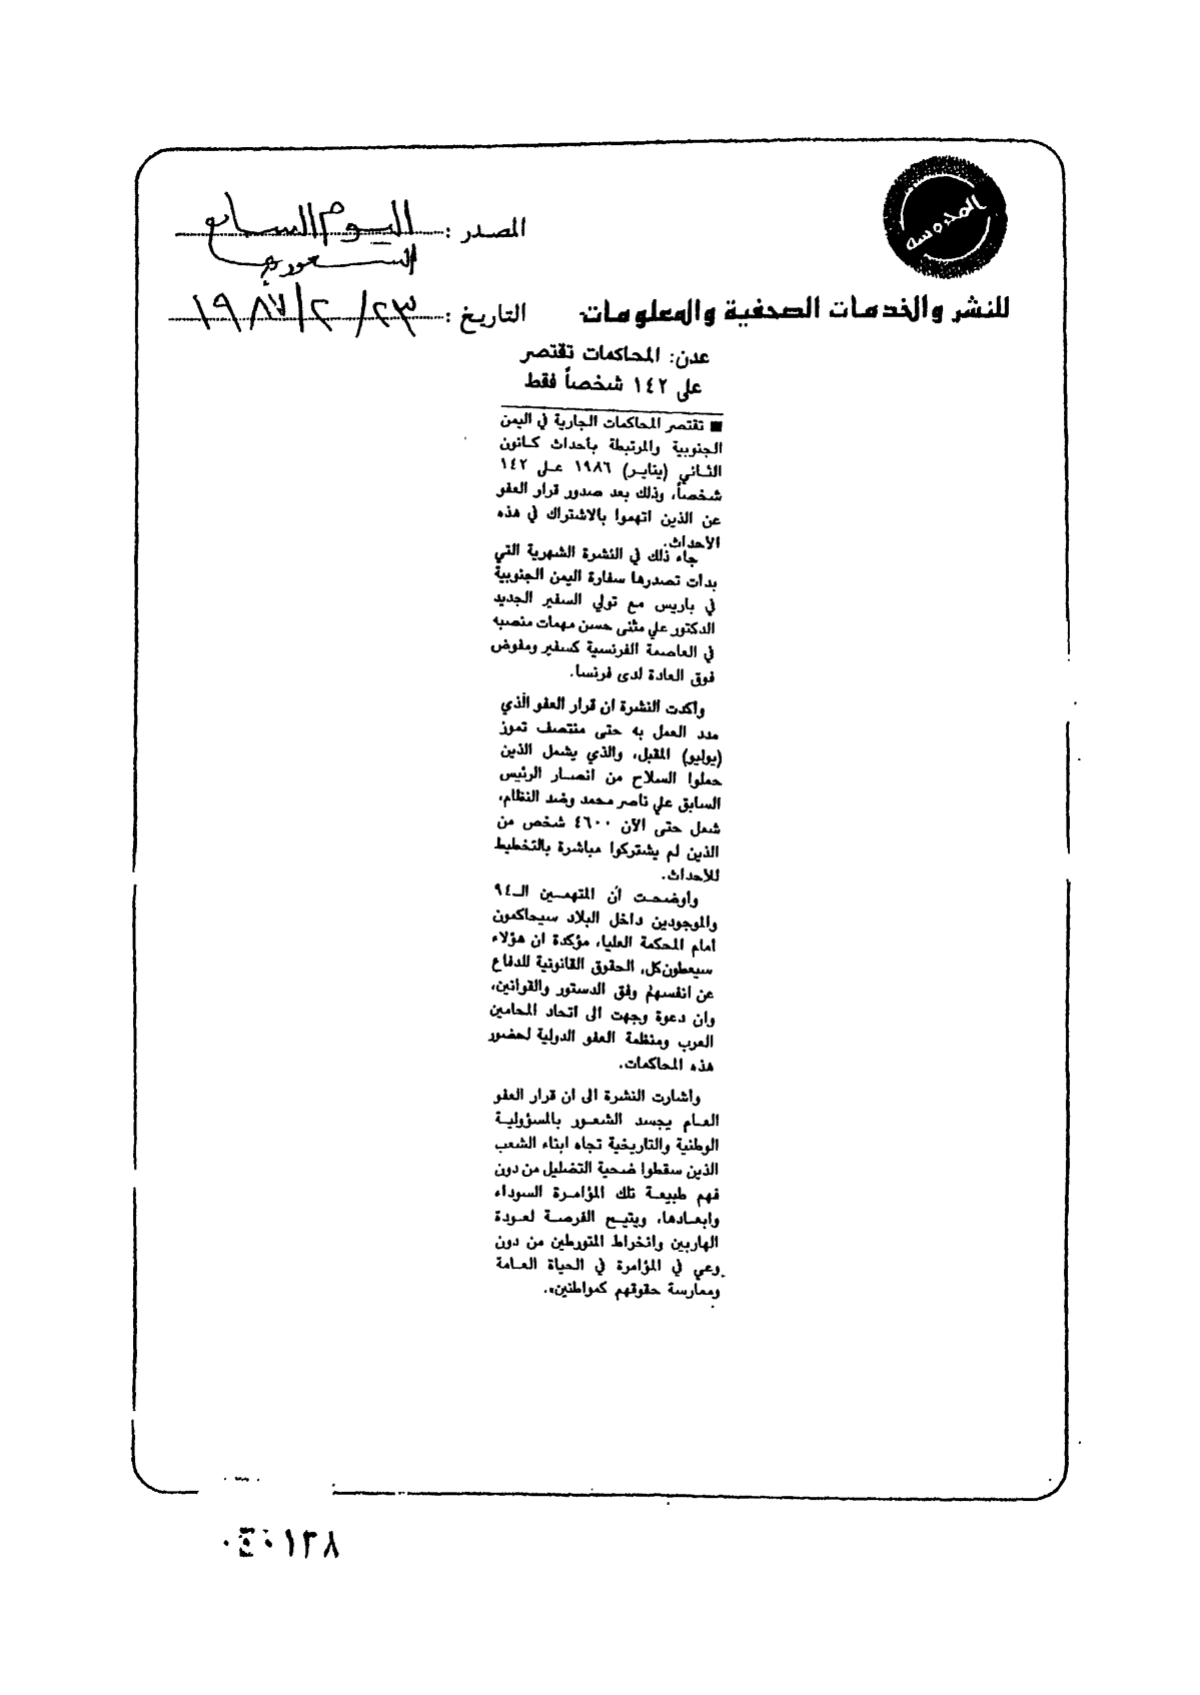 المحروسه
المصدر : اليوم السابع
السعودية
للنشر والخدمات الصحفية والمعلومات
التاريخ : ٢٣/ ٢/ ١٩٨٧
عدن: المحاكمات تقتصر
على ١٤٢ شخصاً فقط
■ تقتصر المحاكمات الجارية في اليمن
الجنوبية والمرتبطة بأحداث كانون
الثاني (يناير) ١٩٨٦ على ١٤٢
شخصاً، وذلك بعد صدور قرار العفو
عن الذين اتهموا بالاشتراك في هذه
الاحداث.
جاء ذلك في النشرة الشهرية التي
بدات تصدرها سفارة اليمن الجنوبية
في باريس مع تولي السفير الجديد
الدكتور علي مثنى حسن مهمات منصبه
في العاصمة الفرنسية كسفير ومفوض
فوق العادة لدى فرنسا.
واكدت النشرة ان قرار العفو الذي
مدد العمل به حتى منتصف تموز
(يوليو) المقبل، والذي يشمل الذين
حملوا السلاح من انصار الرئيس
السابق علي ناصر محمد وضد النظام،
شمل حتى الآن ٤٦٠٠ شخص من
الذين لم يشتركوا مباشرة بالتخطيط
للاحداث.
واوضحت أن المتهمين الـ٩٤
والموجودين داخل البلاد سيحاكمون
امام المحكمة العليا، مؤكدة ان هؤلاء
سيعطون كل، الحقوق القانونية للدفاع
عن انفسهم وفق الدستور والقوانين،
وان دعوة وجهت الى اتحاد المحامين
العرب ومنظمة العفو الدولية لحضور
هذه المحاكمات.
واشارت النشرة الى ان قرار العفو
العام يجسد الشعور بالمسؤولية
الوطنية والتاريخية تجاه ابناء الشعب
الذين سقطوا ضحية التضليل من دون
فهم طبيعة تلك المؤامرة السوداء
وابعادها، ويتيح الفرصة لعودة
الهاربين وانخراط المتورطين من دون
وعي في المؤامرة في الحياة العامة
وممارسة حقوقهم كمواطنين».
١٣٨